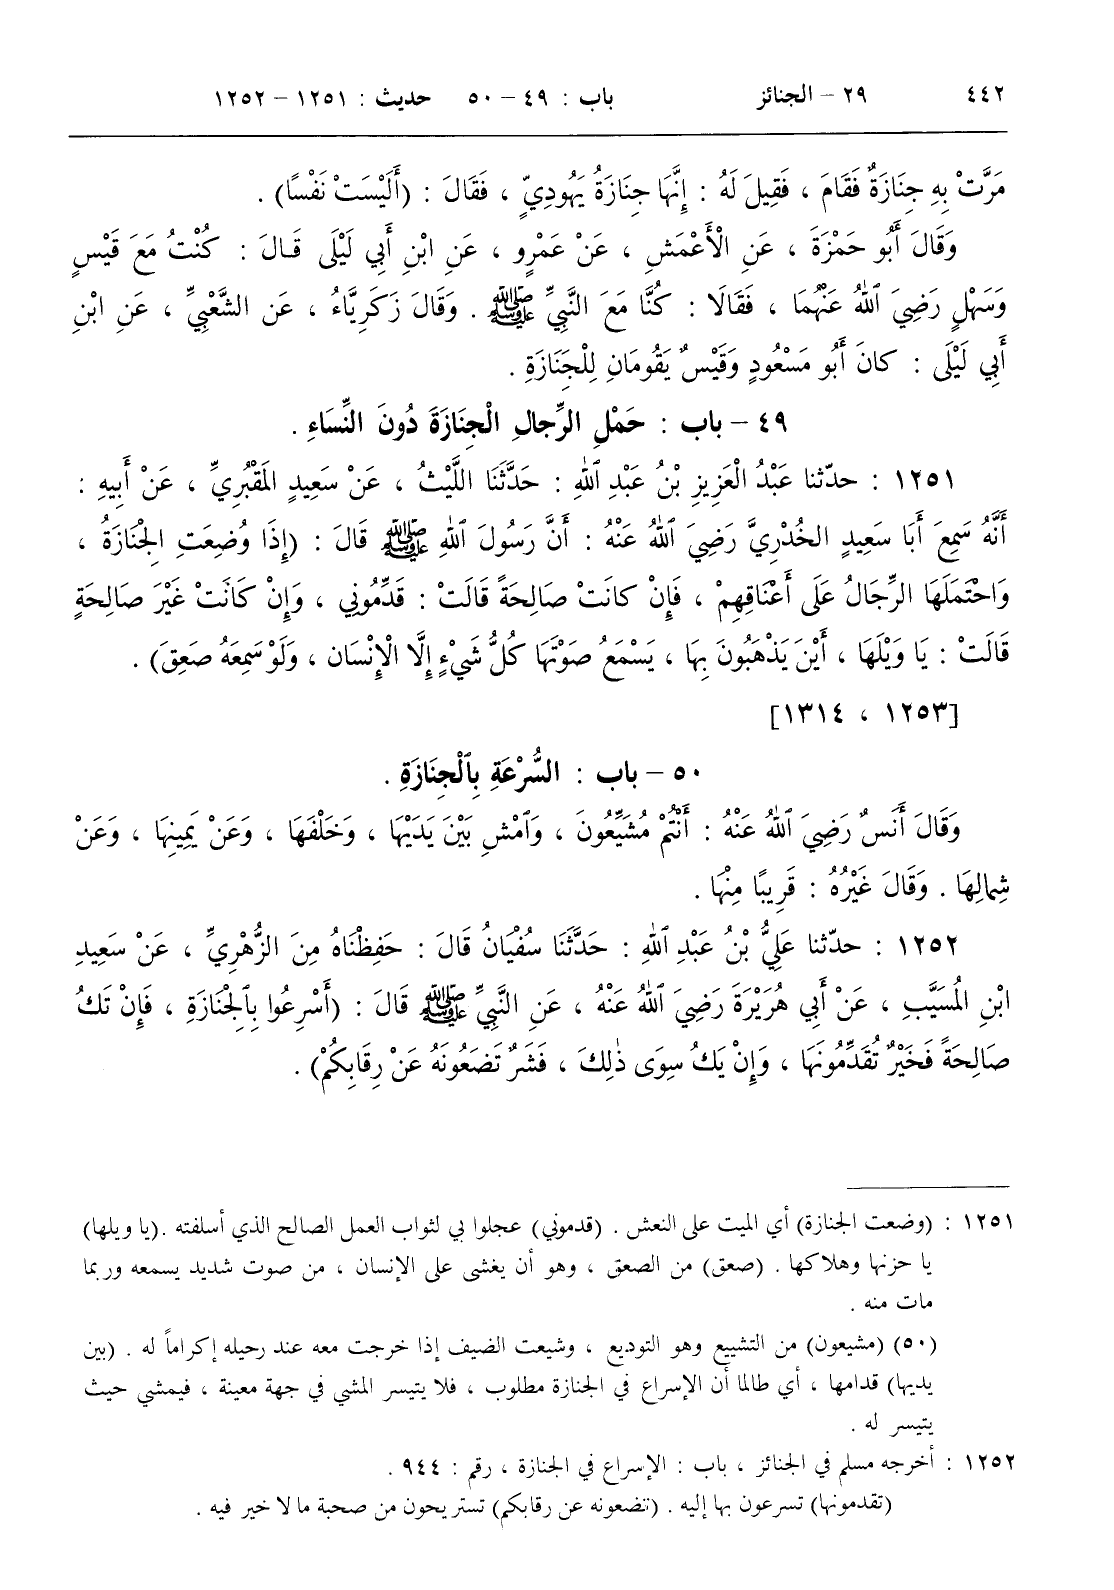 ٤٤٢ ٢٩ – الجنائز باب : ٤٩ – ٥٠ حديث : ١٢٥١ – ١٢٥٢
مَرَّتْ بِهِ جِنَازَةٌ فَقَامَ ، فَقِيلَ لَهُ : إِنَّهَا جِنَازَةُ يَهُودِيٍّ ، فَقَالَ : (أَلَيْسَتْ نَفْسًا) .
وَقَالَ أَبُو حَمْزَةَ ، عَنِ الْأَعْمَشِ ، عَنْ عَمْرٍو ، عَنِ ابْنِ أَبِي لَيْلَى قَالَ : كُنْتُ مَعَ قَيْسٍ
وَسَهْلٍ رَضِيَ ٱللهُ عَنْهُمَا ، فَقَالَا : كُنَّا مَعَ النَّبِيِّ ﷺ . وَقَالَ زَكَرِيَّاءُ ، عَنِ الشَّعْبِيِّ ، عَنِ ابْنِ
أَبِي لَيْلَى : كانَ أَبُو مَسْعُودٍ وَقَيْسٌ يَقُومَانِ لِلْجَنَازَةِ .
٤٩ – باب : حَمْلِ الرِّجالِ الْجِنَازَةَ دُونَ النِّسَاءِ .
١٢٥١ : حدّثنا عَبْدُ الْعَزِيزِ بْنُ عَبْدِ ٱللهِ : حَدَّثَنَا اللَّيْثُ ، عَنْ سَعِيدٍ المَقْبُرِيِّ ، عَنْ أَبِيهِ :
أَنَّهُ سَمِعَ أَبَا سَعِيدٍ الخُدْرِيَّ رَضِيَ ٱللهُ عَنْهُ : أَنَّ رَسُولَ ٱللهِ ﷺ قَالَ : (إِذَا وُضِعَتِ الجِنَازَةُ ،
وَاحْتَمَلَهَا الرِّجَالُ عَلَى أَعْنَاقِهِمْ ، فَإِنْ كانَتْ صَالِحَةً قَالَتْ : قَدِّمُونِي ، وَإِنْ كَانَتْ غَيْرَ صَالِحَةٍ
قَالَتْ : يَا وَيْلَهَا ، أَيْنَ يَذْهَبُونَ بِهَا ، يَسْمَعُ صَوْتَهَا كُلُّ شَيْءٍ إِلَّا الْإِنْسَان ، وَلَوْ سَمِعَهُ صَعِقَ) .
[١٢٥٣ ، ١٣١٤]
٥٠ – باب : السُّرْعَةِ بِٱلْجِنَازَةِ .
وَقَالَ أَنَسٌ رَضِيَ ٱللهُ عَنْهُ : أَنْتُمْ مُشَيِّعُونَ ، وَٱمْشِ بَيْنَ يَدَيْهَا ، وَخَلْفَهَا ، وَعَنْ يَمِينِهَا ، وَعَنْ
شِمالِهَا . وَقَالَ غَيْرُهُ : قَرِيبًا مِنْهَا .
١٢٥٢ : حدّثنا عَلِيُّ بْنُ عَبْدِ ٱللهِ : حَدَّثَنَا سُفْيَانُ قَالَ : حَفِظْنَاهُ مِنَ الزُّهْرِيِّ ، عَنْ سَعِيدِ
ابْنِ المُسَيَّبِ ، عَنْ أَبِي هُرَيْرَةَ رَضِيَ ٱللهُ عَنْهُ ، عَنِ النَّبِيِّ ﷺ قَالَ : (أَسْرِعُوا بِٱلْجِنَازَةِ ، فَإِنْ تَكُ
صَالِحَةً فَخَيْرٌ تُقَدِّمُونَهَا ، وَإِنْ يَكُ سِوَى ذٰلِكَ ، فَشَرٌّ تَضَعُونَهُ عَنْ رِقَابِكُمْ) .
١٢٥١ : (وضعت الجنازة) أي الميت على النعش . (قدموني) عجلوا بي لثواب العمل الصالح الذي أسلفته .(يا ويلها)
يا حزنها وهلاكها . (صعق) من الصعق ، وهو أن يغشى على الإنسان ، من صوت شديد يسمعه وربما
مات منه .
(٥٠) (مشيعون) من التشييع وهو التوديع ، وشيعت الضيف إذا خرجت معه عند رحيله إكراماً له . (بين
يديها) قدامها ، أي طالما أن الإسراع في الجنازة مطلوب ، فلا يتيسر المشي في جهة معينة ، فيمشي حيث
يتيسر له .
١٢٥٢ : أخرجه مسلم في الجنائز ، باب : الإسراع في الجنازة ، رقم : ٩٤٤ .
(تقدمونها) تسرعون بها إليه . (تضعونه عن رقابكم) تستريحون من صحبة ما لا خير فيه .